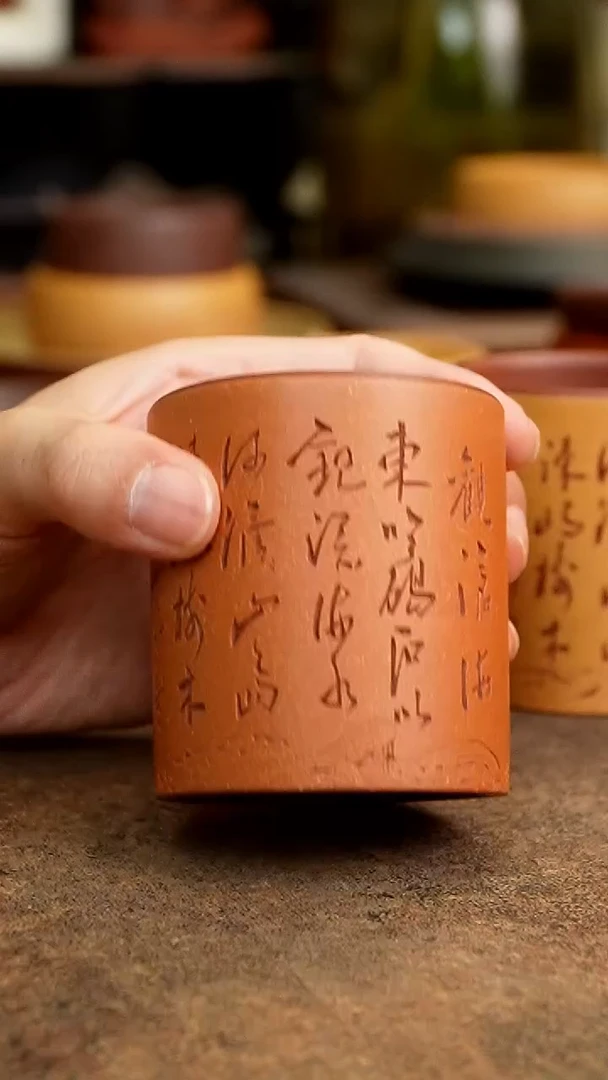 觀滄海
東臨碣石以
觀滄海水
何澹山島
樹木
竦峙樹木